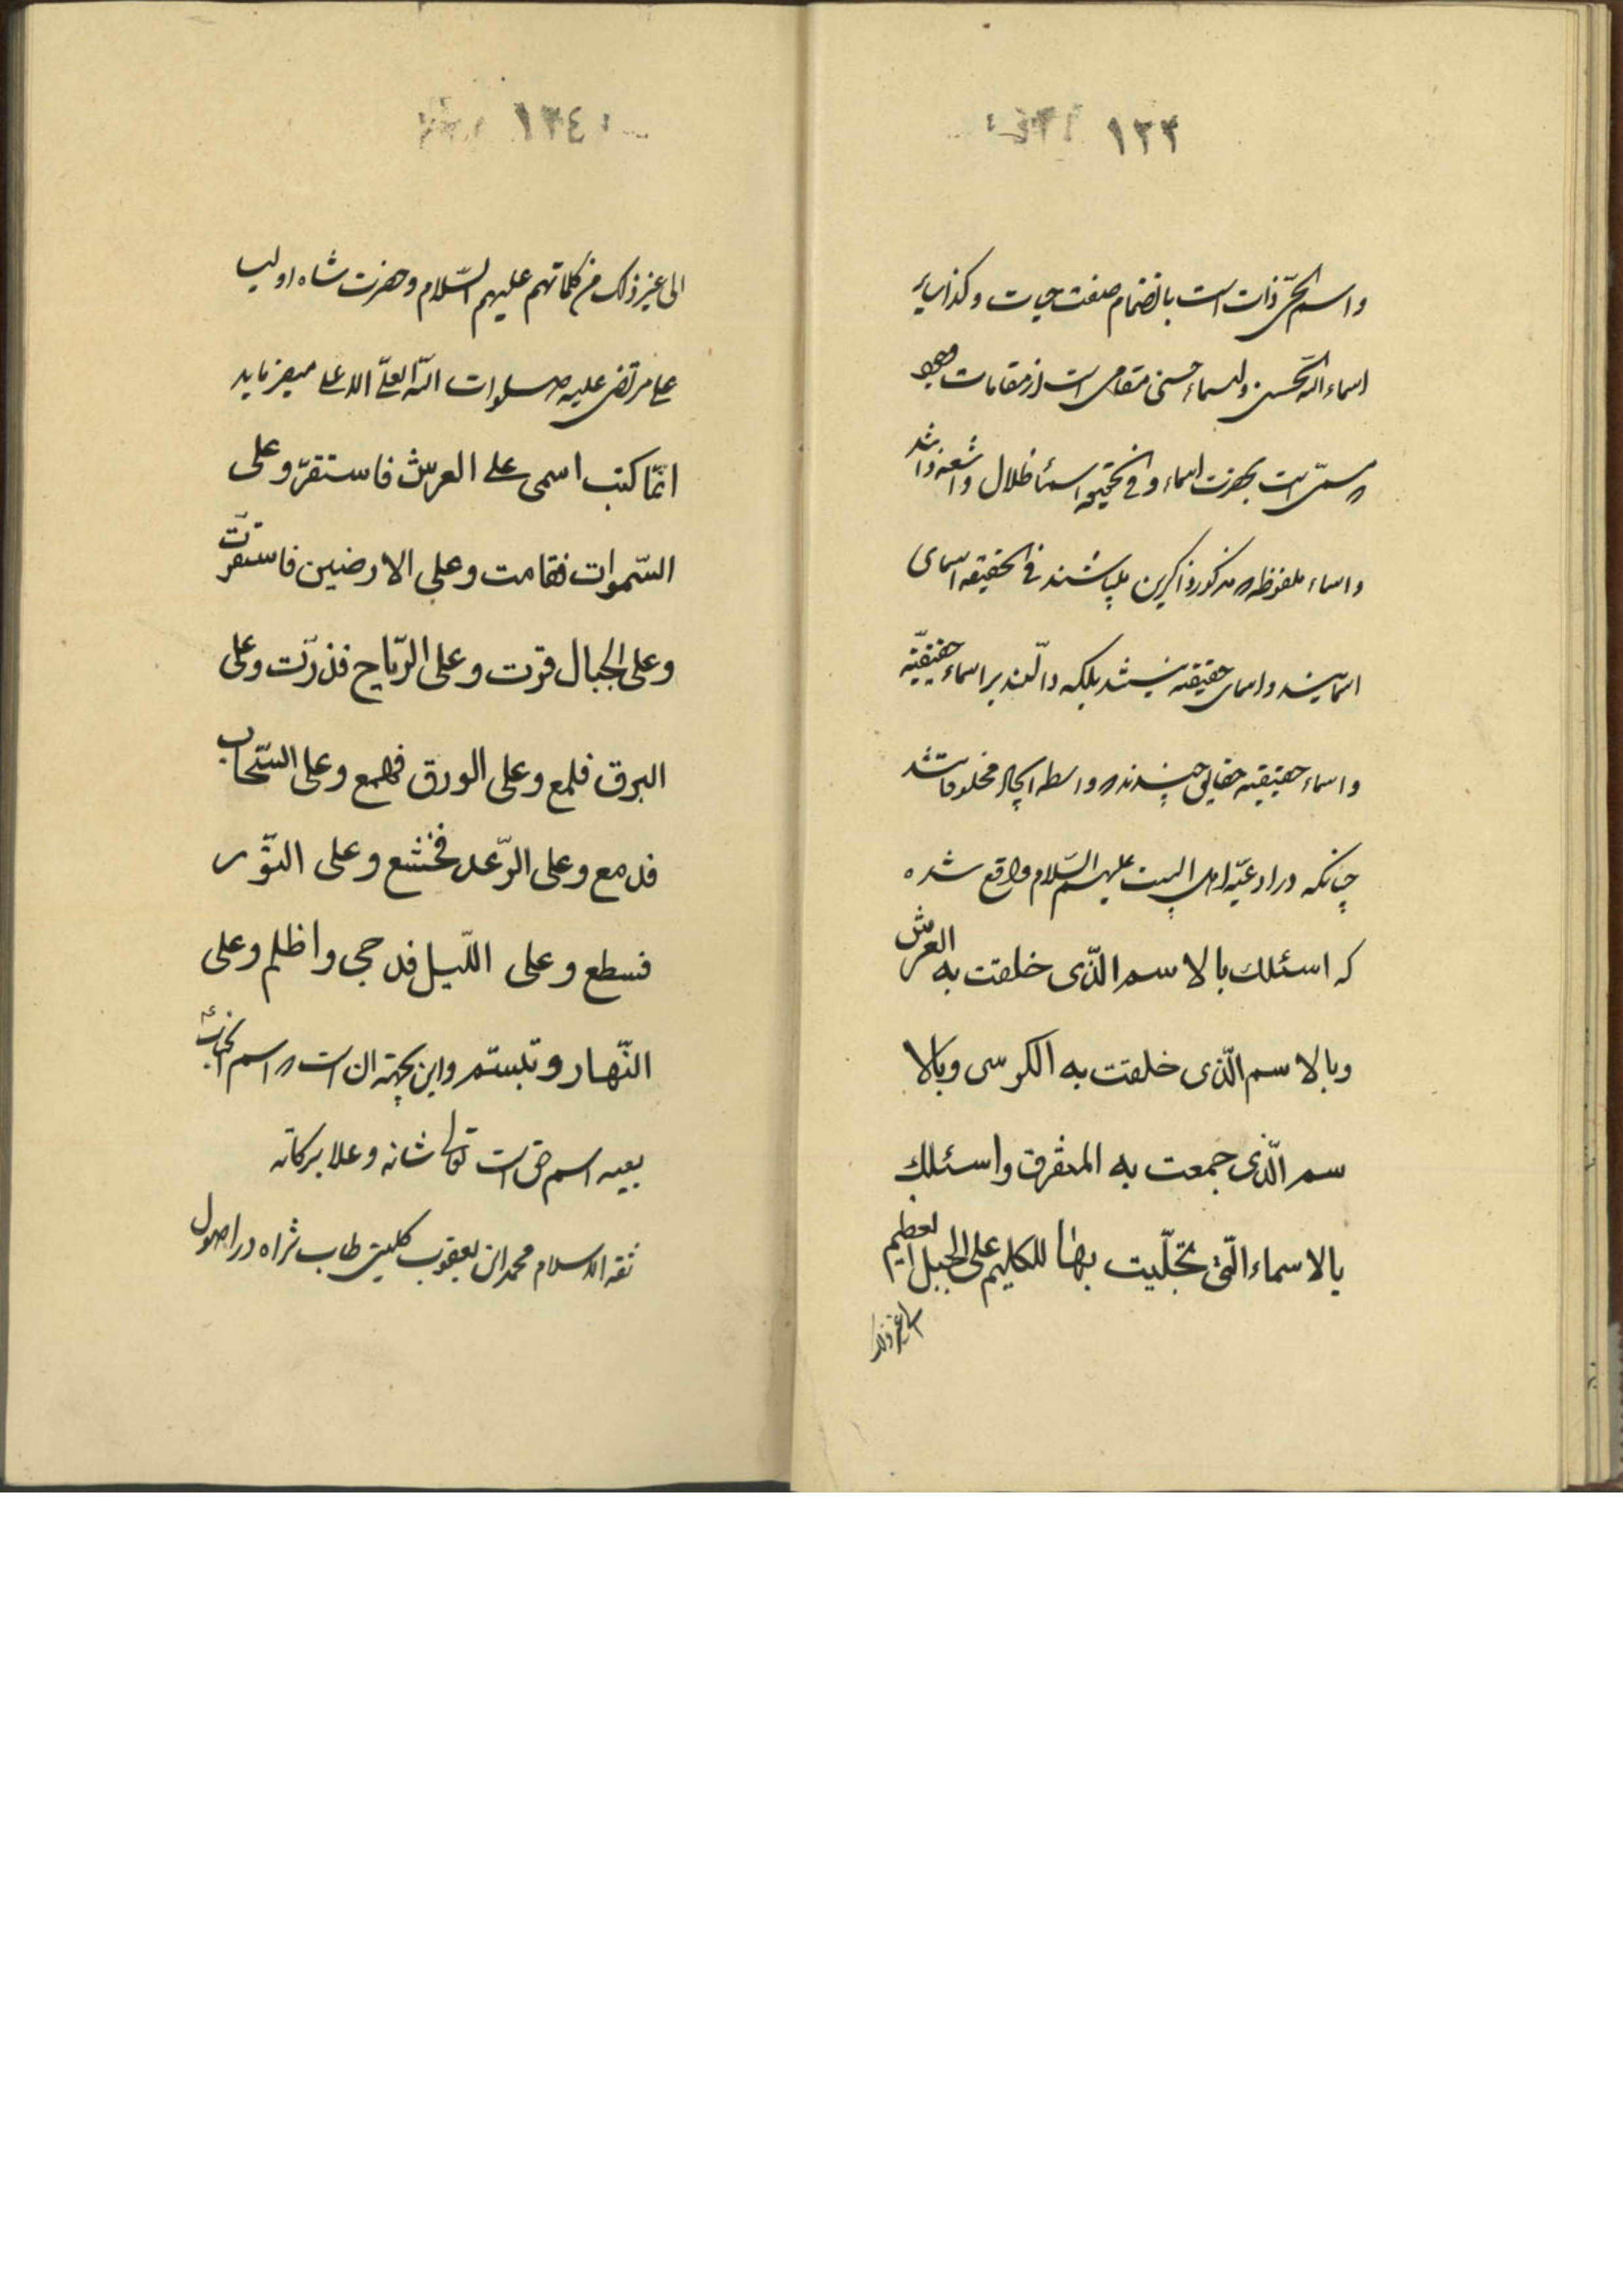 ١٣٣
واسم الحی ذات است بانضمام صفت حیات وکذا سایر
اسماء الله الحسنی و اسماء حسنی مقامی است از مقامات وجود
که مسمی است بحضرت اسماء و فی الحقیقه اسماء ظلال و اشعه ذاتند
و اسماء ملفوظه که مذکور ذاکرین میباشند فی الحقیقه اسمای
اسمایند و اسمای حقیقیه نیستند بلکه دالّند بر اسماء حقیقیّه
و اسماء حقیقیه حقایق چندند که واسطه ایجاد مخلوقاتند
چنانکه در ادعیّه اهل البیت علیهم السّلام واقع شده
که اسئلك بالاسم الّذی خلقت به العرش
وبالاسم الّذی خلقت به الکرسی وبالا
سم الّذی جمعت به المتفرق واسئلك
بالاسماء الّتی تجلّیت بها للکلیم علی الجبل العظیم
الی غیر ذلک
١٣٤
الی غیر ذلک من کلماتهم علیهم السّلام و حضرت شاه اولیا
علی مرتضی علیه صلوات الله العلیّ الاعلی میفرماید
انّما کتب اسمی علی العرش فاستقرّ وعلی
السّموات فقامت وعلی الارضین فاستقرّت
وعلی الجبال قرّت وعلی الرّیاح فذرّت وعلی
البرق فلمع وعلی الورق فهمع وعلی السّحاب
فدمع وعلی الرّعد فخشع وعلی النّور
فسطع وعلی اللّیل فدجی واظلم وعلی
النّهار وتبسّم و این بجهته ان است که اسم انجناب
بعینه اسم حق است تعالی شانه و علا برکاته
ثقه الاسلام محمد ابن یعقوب کلینی طاب ثراه در اصول